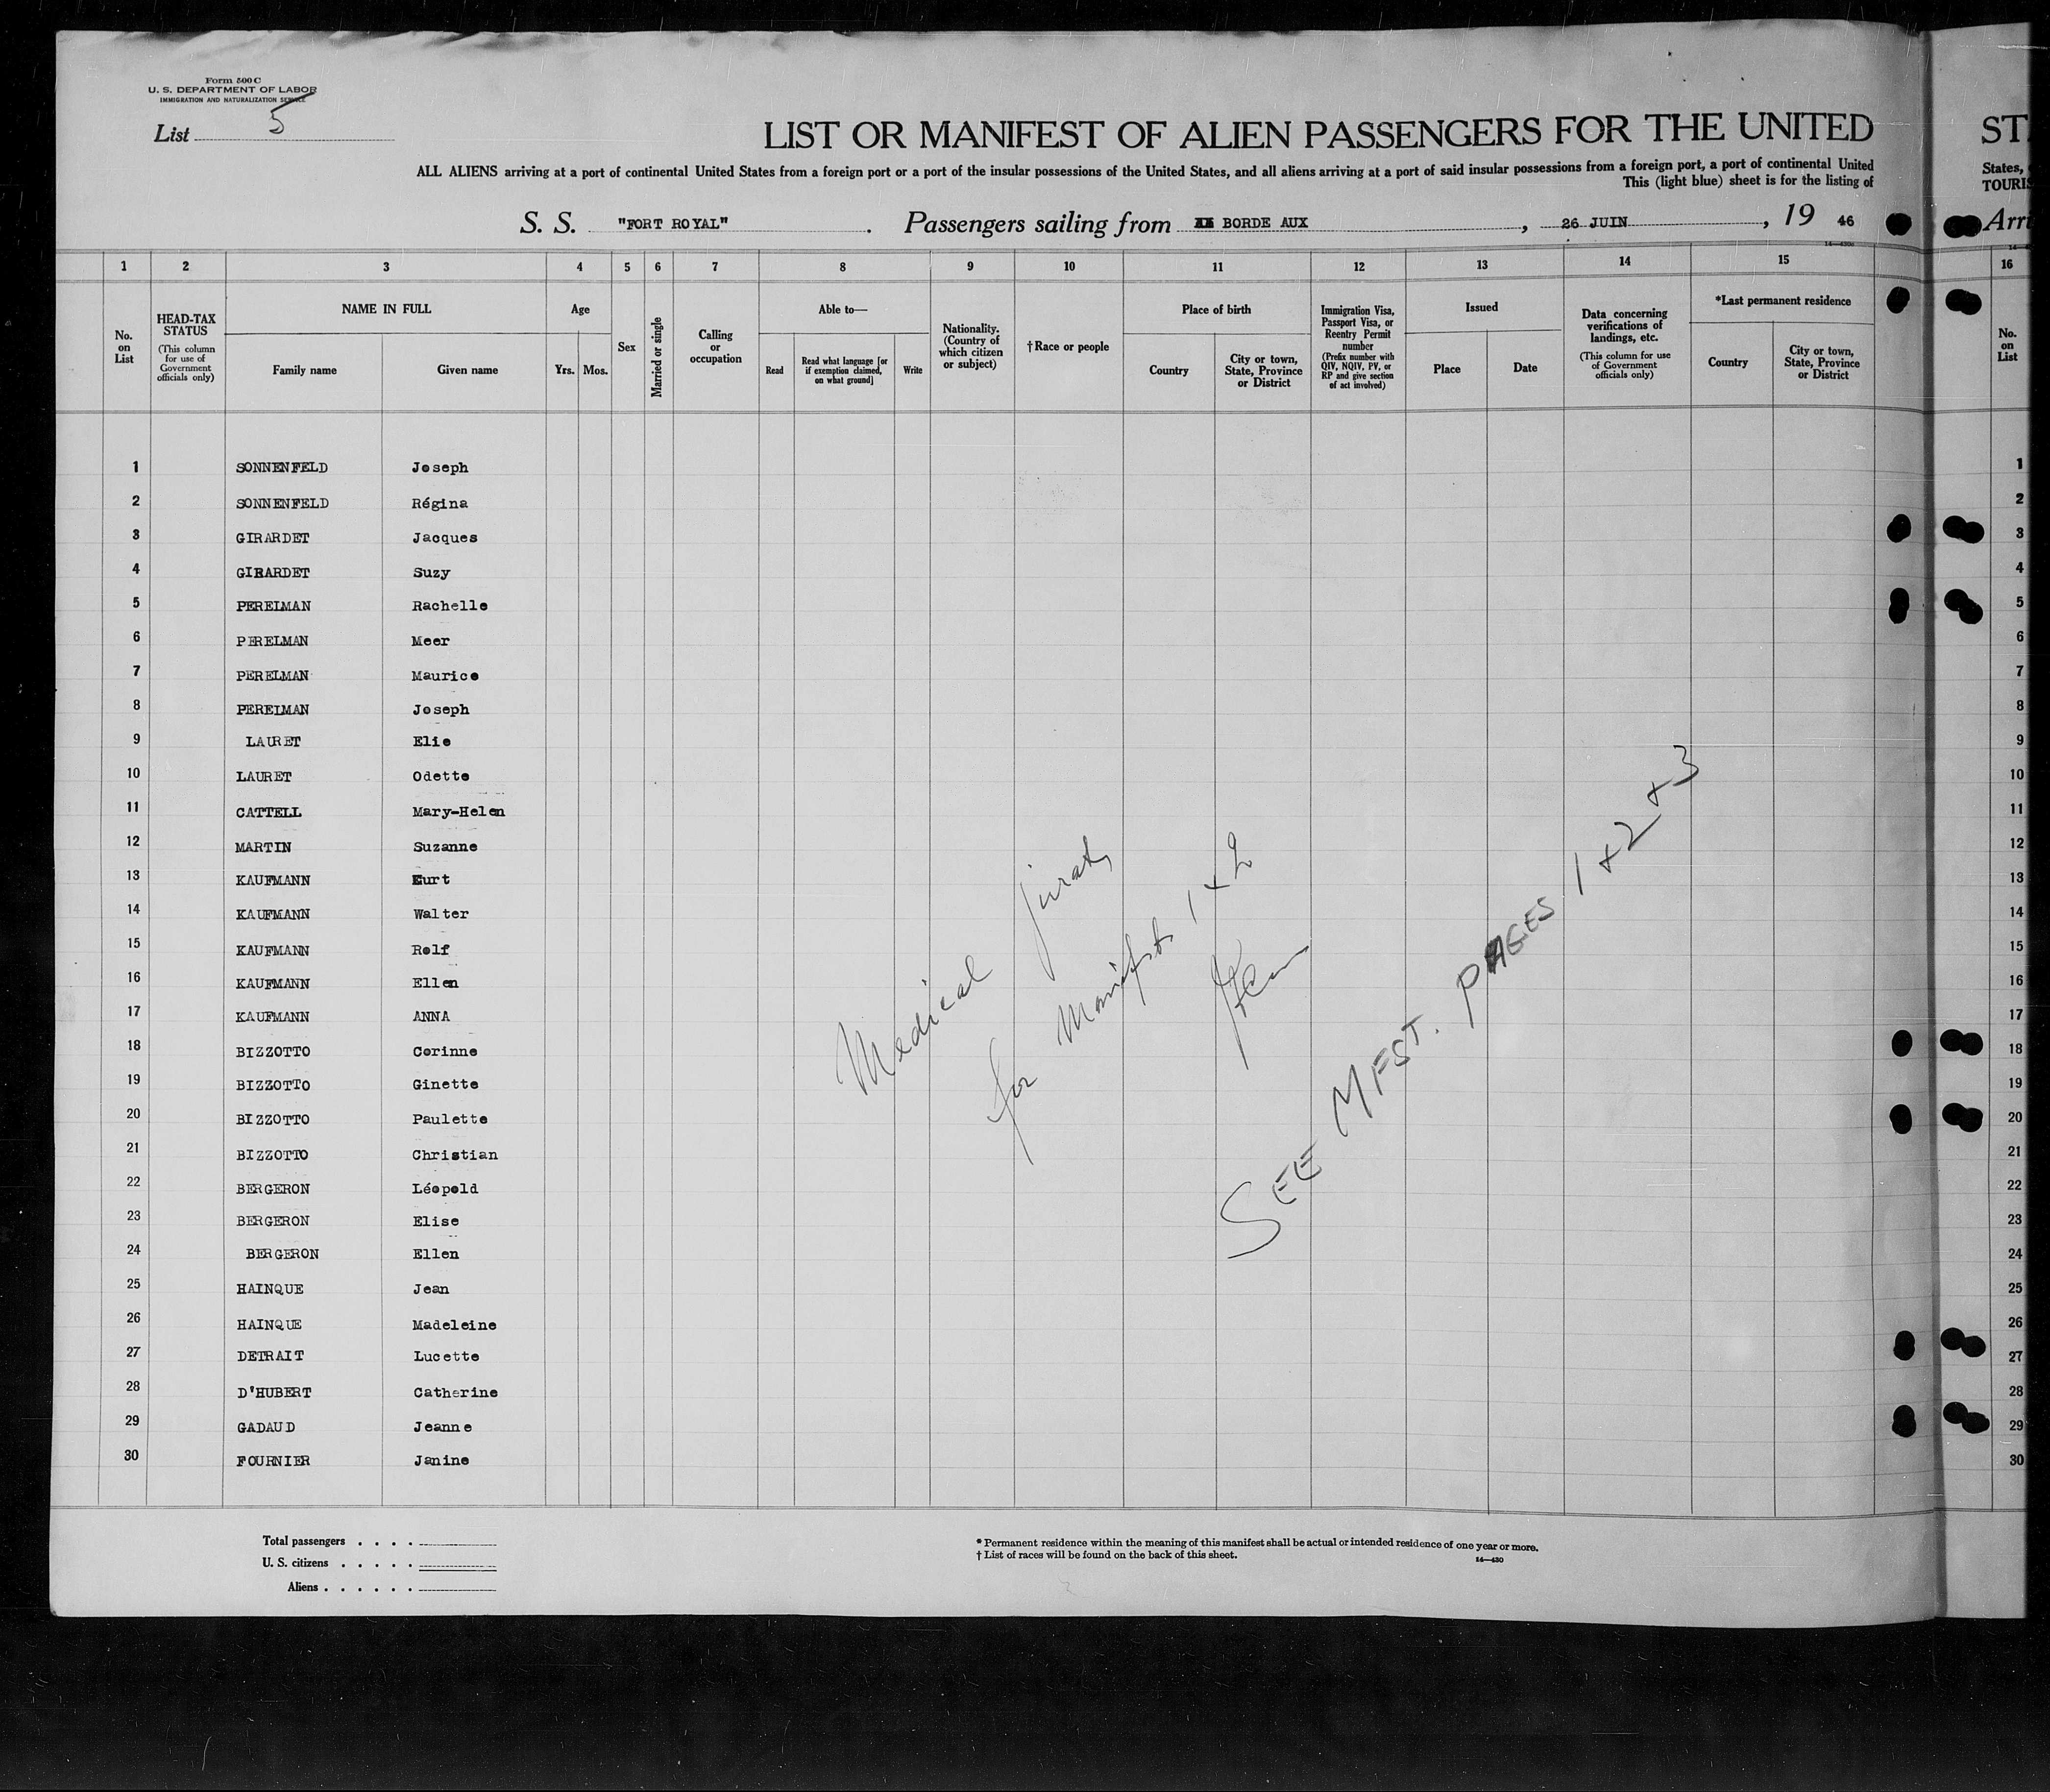 Form 500 C
U. S. DEPARTMENT OF LABOR
IMMIGRATION AND NATURALIZATION SERVICE
List 5
LIST OR MANIFEST OF ALIEN PASSENGERS FOR THE UNITED
ST
ALL ALIENS arriving at a port of continental United States from a foreign port or a port of the insular possessions of the United States, and all aliens arriving at a port of said insular possessions from a foreign port, a port of continental United
States,
This (light blue) sheet is for the listing of
TOURIS
S. S. "FORT ROYAL". Passengers sailing from BORDE AUX, 26 JUIN, 19 46
Arri
1 2 3 4 5 6 7 8 9 10 11 12 13 14 15 16
No. on List
HEAD-TAX STATUS (This column for use of Government officials only)
NAME IN FULL
Family name Given name
Age
Yrs. Mos.
Sex
Married or single
Calling or occupation
Able to—
Read
Read what language [or if exemption claimed, on what ground]
Write
Nationality. (Country of which citizen or subject)
† Race or people
Place of birth
Country
City or town, State, Province or District
Immigration Visa, Passport Visa, or Reentry Permit number (Prefix number with QIV, NQIV, PV, or RP and give section of act involved)
Issued
Place Date
Data concerning verifications of landings, etc. (This column for use of Government officials only)
*Last permanent residence
Country
City or town, State, Province or District
No. on List
1 SONNENFELD Joseph 1
2 SONNENFELD Régina 2
3 GIRARDET Jacques 3
4 GIRARDET Suzy 4
5 PERELMAN Rachelle 5
6 PERELMAN Meer 6
7 PERELMAN Maurice 7
8 PERELMAN Joseph 8
9 LAURET Elie 9
10 LAURET Odette 10
11 CATTELL Mary-Helen 11
12 MARTIN Suzanne 12
13 KAUFMANN Kurt 13
14 KAUFMANN Walter 14
15 KAUFMANN Rolf 15
16 KAUFMANN Ellen 16
17 KAUFMANN ANNA 17
18 BIZZOTTO Corinne 18
19 BIZZOTTO Ginette 19
20 BIZZOTTO Paulette 20
21 BIZZOTTO Christian 21
22 BERGERON Léopold 22
23 BERGERON Elise 23
24 BERGERON Ellen 24
25 HAINQUE Jean 25
26 HAINQUE Madeleine 26
27 DETRAIT Lucette 27
28 D'HUBERT Catherine 28
29 GADAUD Jeanne 29
30 FOURNIER Janine 30
Medical jurat
for Manifest 1 + 2
SEE MFST. PAGES 1 + 2 + 3
Total passengers . . . .
U. S. citizens . . . . .
Aliens . . . . . .
* Permanent residence within the meaning of this manifest shall be actual or intended residence of one year or more.
† List of races will be found on the back of this sheet.
14—430